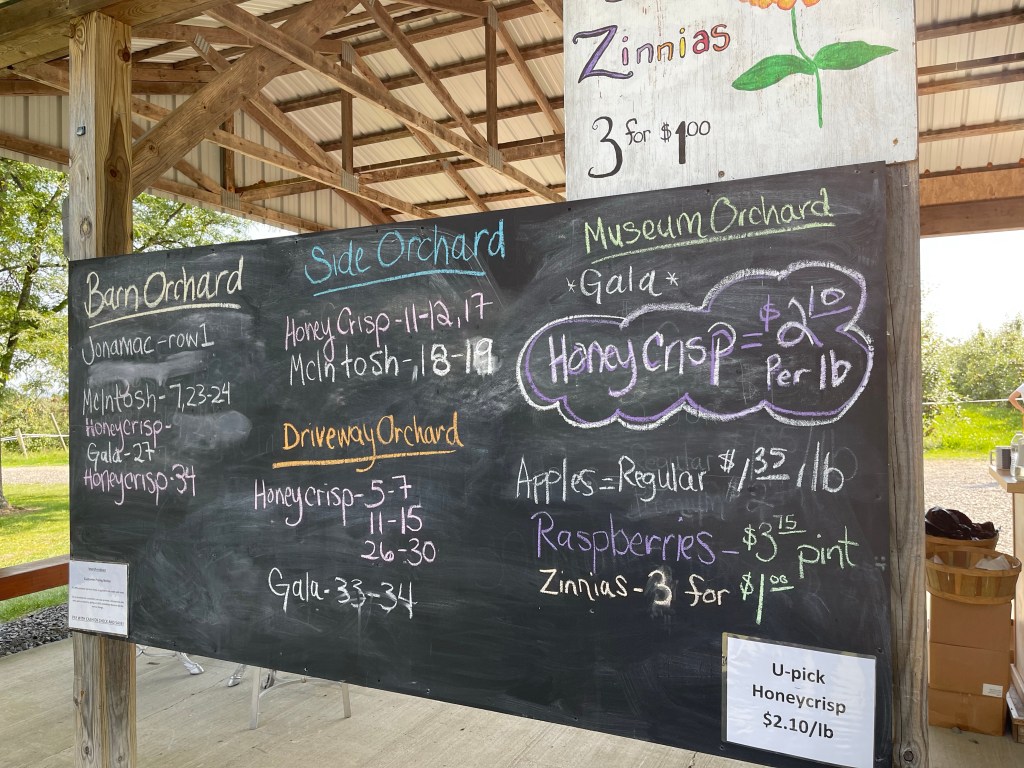 Zinnias
3 for $1.00
Barn Orchard
Jonamac-row 1
McIntosh- 7,23-24
Honeycrisp-
Gala-27
Honeycrisp-34
Side Orchard
HoneyCrisp-11-12,17
McIntosh-,18-19
Driveway Orchard
Honeycrisp-5-7
11-15
26-30
Gala-33-34
Museum Orchard
*Gala*
Honeycrisp = $2.10
Per lb
Apples=Regular $1.35/lb
Raspberries-$3.75 pint
Zinnias-3 for $1.00
U-pick
Honeycrisp
$2.10/lb